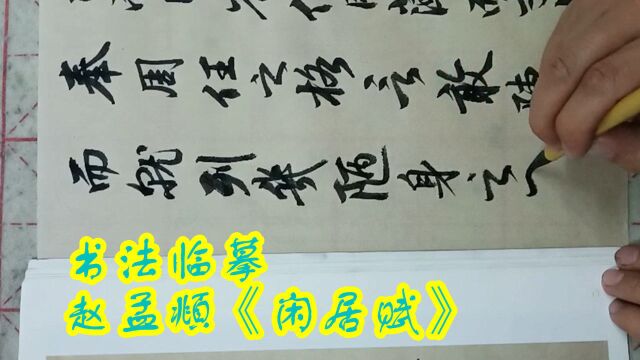 奉周任之格言敢陳
而就列幾陋身之
书法临摹
赵孟頫《闲居赋》